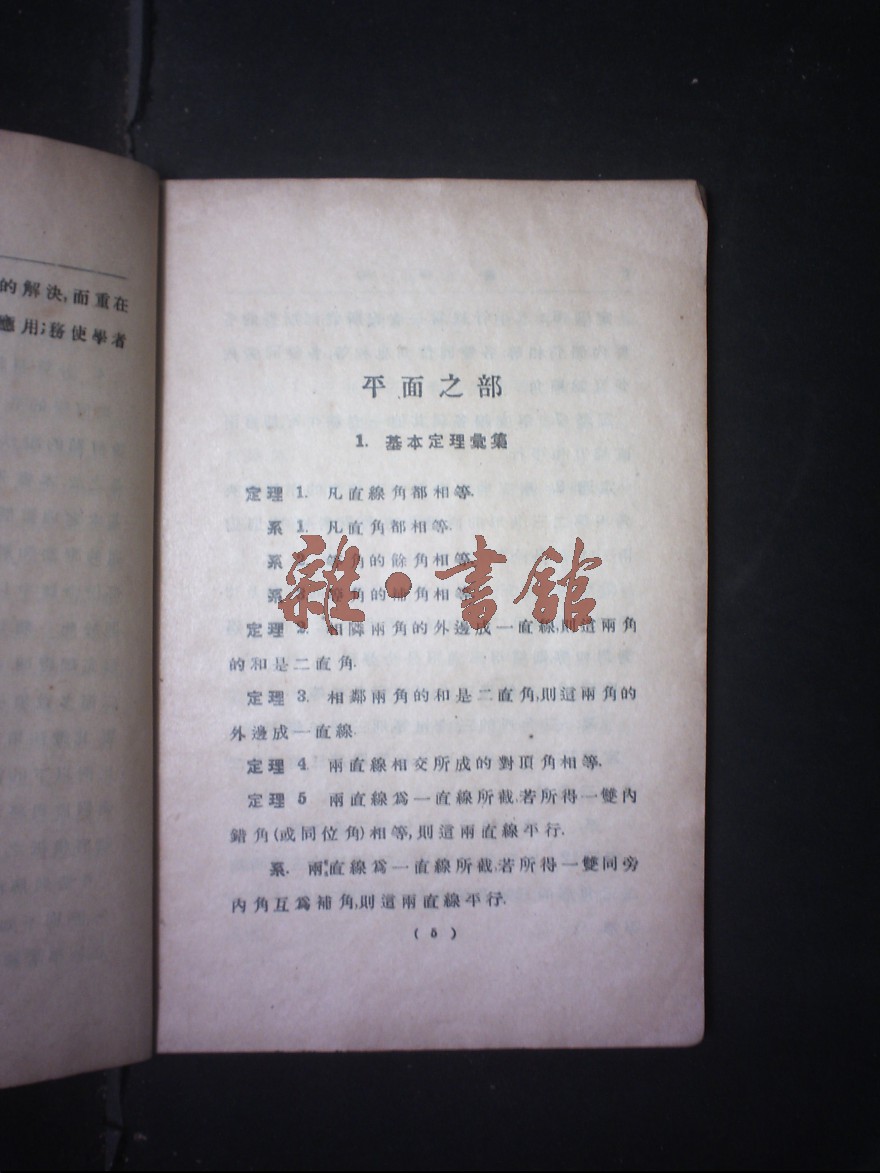 的解決,而重在
應用;務使學者
平面之部
1. 基本定理彙集
定理 1. 凡直線角都相等.
系 1. 凡直角都相等.
系 2. 等角的餘角相等.
系 3. 等角的補角相等.
雜·書館
定理 2. 相隣兩角的外邊成一直線,則這兩角
的和是二直角.
定理 3. 相鄰兩角的和是二直角,則這兩角的
外邊成一直線.
定理 4. 兩直線相交所成的對頂角相等.
定理 5 兩直線爲一直線所截,若所得一雙內
錯角(或同位角)相等,則這兩直線平行.
系. 兩直線爲一直線所截,若所得一雙同旁
內角互爲補角,則這兩直線平行.
( 5 )